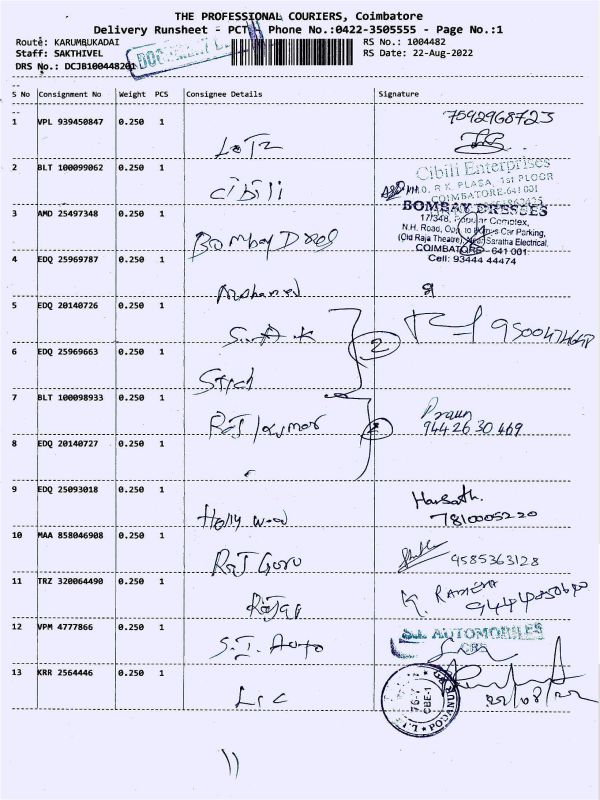 THE PROFESSIONAL COURIERS, Coimbatore
Delivery Runsheet - PCT Phone No.:0422-3505555 - Page No.:1
Route: KARUMBUKADAI RS No.: 1004482
Staff: SAKTHIVEL RS Date: 22-Aug-2022
DRS No.: DCJB100448201
S No Consignment No Weight PCS Consignee Details Signature
1 VPL 939450847 0.250 1 7592968723
2 BLT 100099062 0.250 1 Cibili Cibili Enterprises
R K PLAZA, 1st FLOOR
COIMBATORE.641 001
3 AMD 25497348 0.250 1 Bombay Dress BOMBAY DRESSES
17/348, Popular Complex,
N.H. Road, Opp. to Car Parking,
(Old Raja Theatre) Saratha Electrical,
COIMBATORE - 641 001.
Cell: 93444 44474
4 EDQ 25969787 0.250 1 Mohamed
5 EDQ 20140726 0.250 1
6 EDQ 25969663 0.250 1 2
7 BLT 100098933 0.250 1 Raj Kumar
9442630469
8 EDQ 20140727 0.250 1
9 EDQ 25093018 0.250 1 Holly wood Harsath.
7810005220
10 MAA 858046908 0.250 1 Raj Guru 9585363128
11 TRZ 320064490 0.250 1 Rajan K. RAMESH
12 VPM 4777866 0.250 1 S.I. Auto S.I. AUTOMOBILES
CBE
13 KRR 2564446 0.250 1 LIC CBE-1
22/08/22